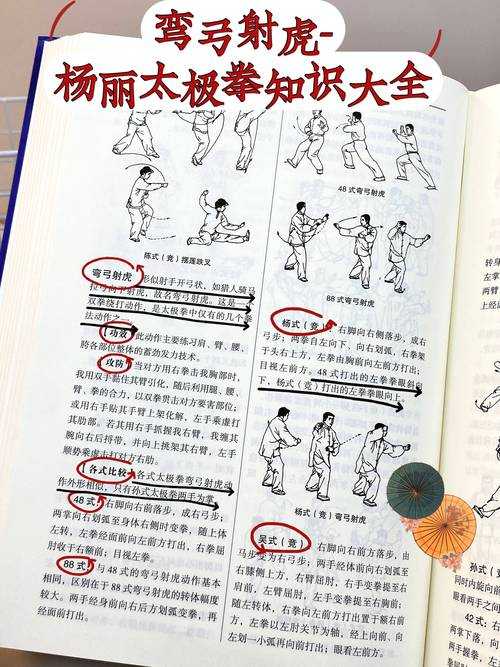 弯弓射虎-
杨丽太极拳知识大全
陈式(竞)摆莲跌叉
弯弓射虎 形似射手开弓状,如猎人骑马
拉弓向下射虎,故名弯弓射虎。这是一
双拳绕打动作,是太极拳中仅有的几个拳
法动作之一。
功效 此动作主要练习肩、臂、腰、
胯各部位整体的蓄劲发力技术。
攻防 当对方用右拳击我胸部时,
我用双手黏住其臂引化,随后利用腿、腰、
臂、拳的合力,以双拳贯击对方要害部位;
或用右手粘其手臂上架化解,左手乘虚打
其肋部。若其用右手抓握我右臂,我缠其
腕向右后捋带,并向上挑架其右臂,左手
顺势乘虚击打对方右肋。
各式比较 各式太极拳弯弓射虎动
作外形相似,只有孙式太极拳两手为掌。
48式 右脚向右前落步,成右弓步;
两掌向右划弧至身体右侧时变拳,随上体
左转,左拳经面前向左前方打出,右拳屈
肘收于右额前;目视左拳。
88式 与48式的弯弓射虎动作基本
相同,区别在于88式弯弓射虎的转体幅度
较大。两手经身前向右后方划弧变拳,再
经面前打出。
48式弯弓射虎
88式弯弓射虎
杨式(竞) 右脚向右侧落步,成右
弓步;两拳自左向下、向右划弧,右拳架
于头右上方,左拳由胸前向左前方打出;
目视左前方。48式打出的左拳拳眼斜向
下,杨式(竞)打出的左拳拳眼向上。
杨式(竞)弯弓射虎
吴式(竞) 右脚向右前方落步,由
马步变为右弓步;两手经体前向右划弧至
右膝侧上方,右臂屈肘,右手变拳提至右
肩前,左臂屈肘,左手变拳提至右胸前;
随左转体,右拳向左前方打出置于额右前
方,左拳以左肘关节为轴,经上向前、向
左划一小弧再向前打出;眼看左前方。
孙式(
同时内旋向前
眼看两手之间
42式:右